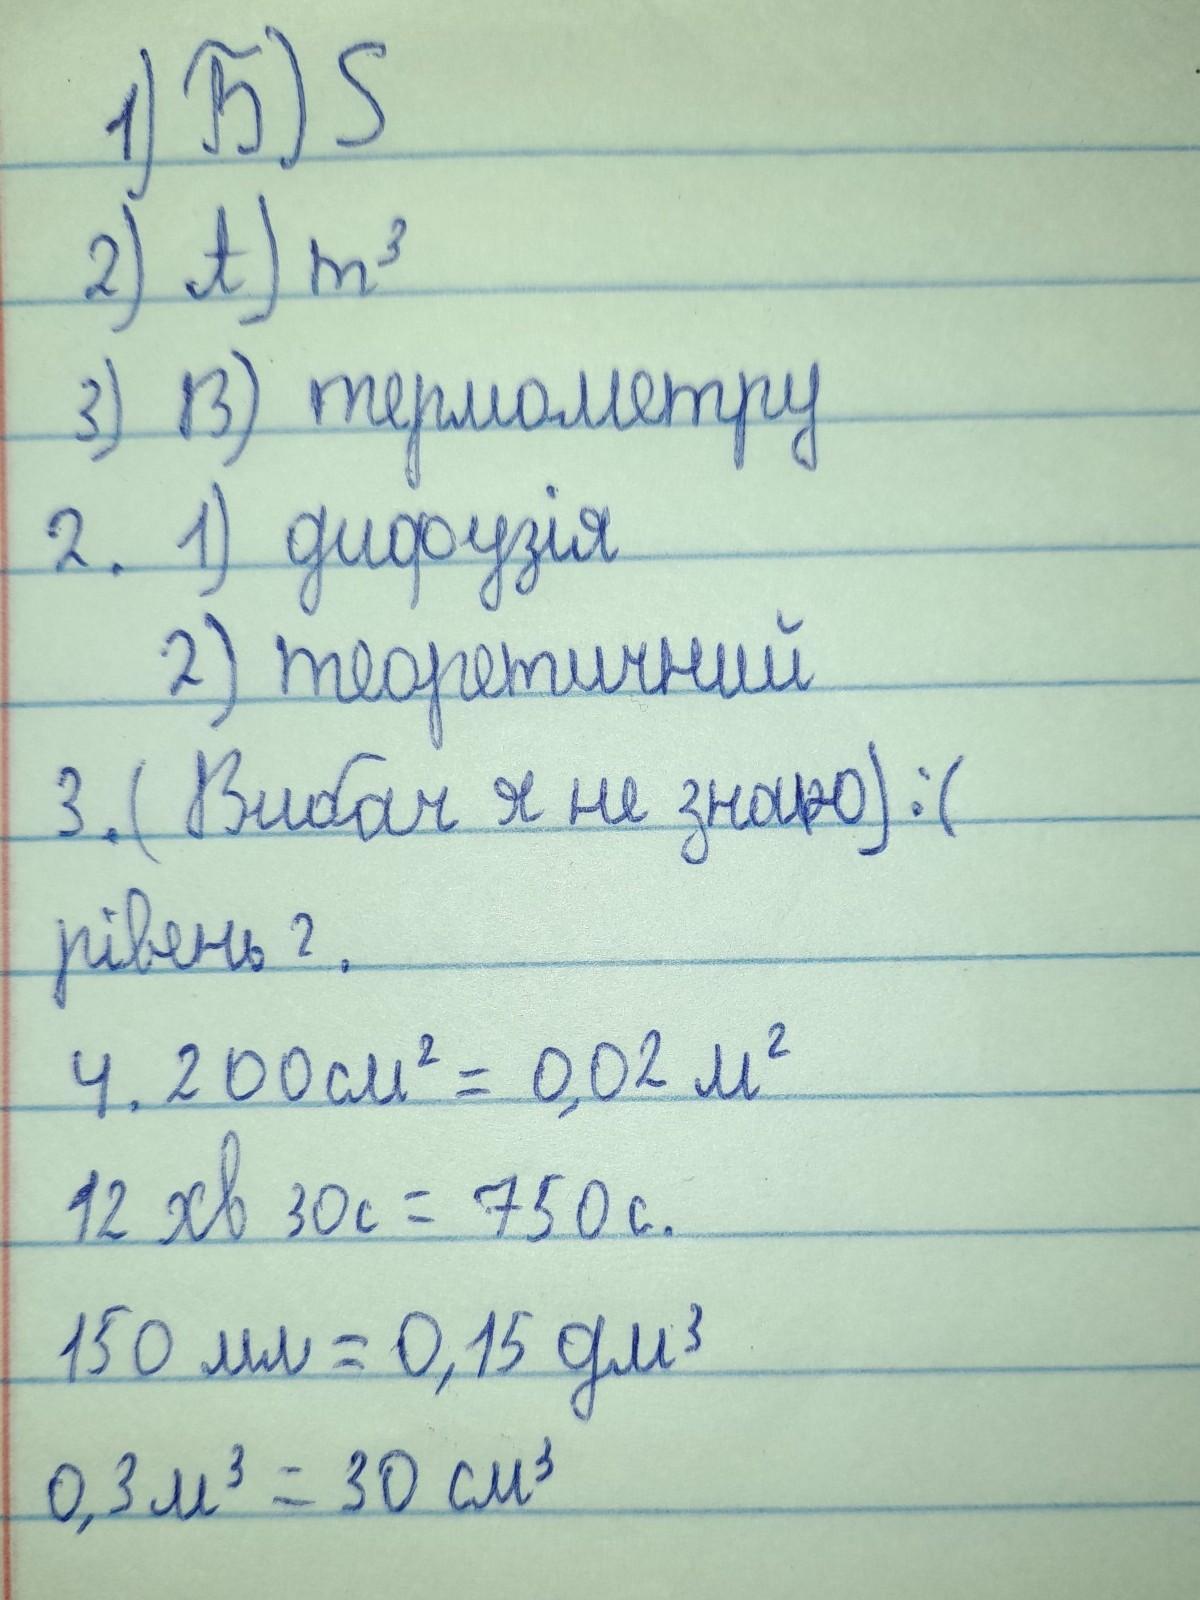 1) Б) S
2) А) m³
3) В) термометру
2. 1) дифузія
2) теоретичний
3. (Вибач я не знаю) :(
рівень 2.
4. 200 см² = 0,02 м²
12 хв 30с = 750 с.
150 мл = 0,15 дм³
0,3 м³ = 30 см³